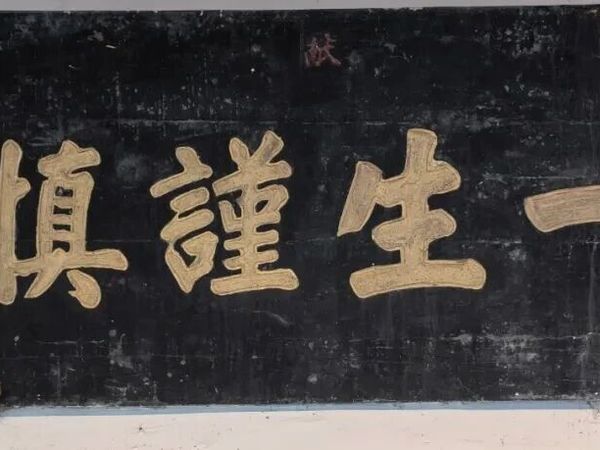 一生謹慎